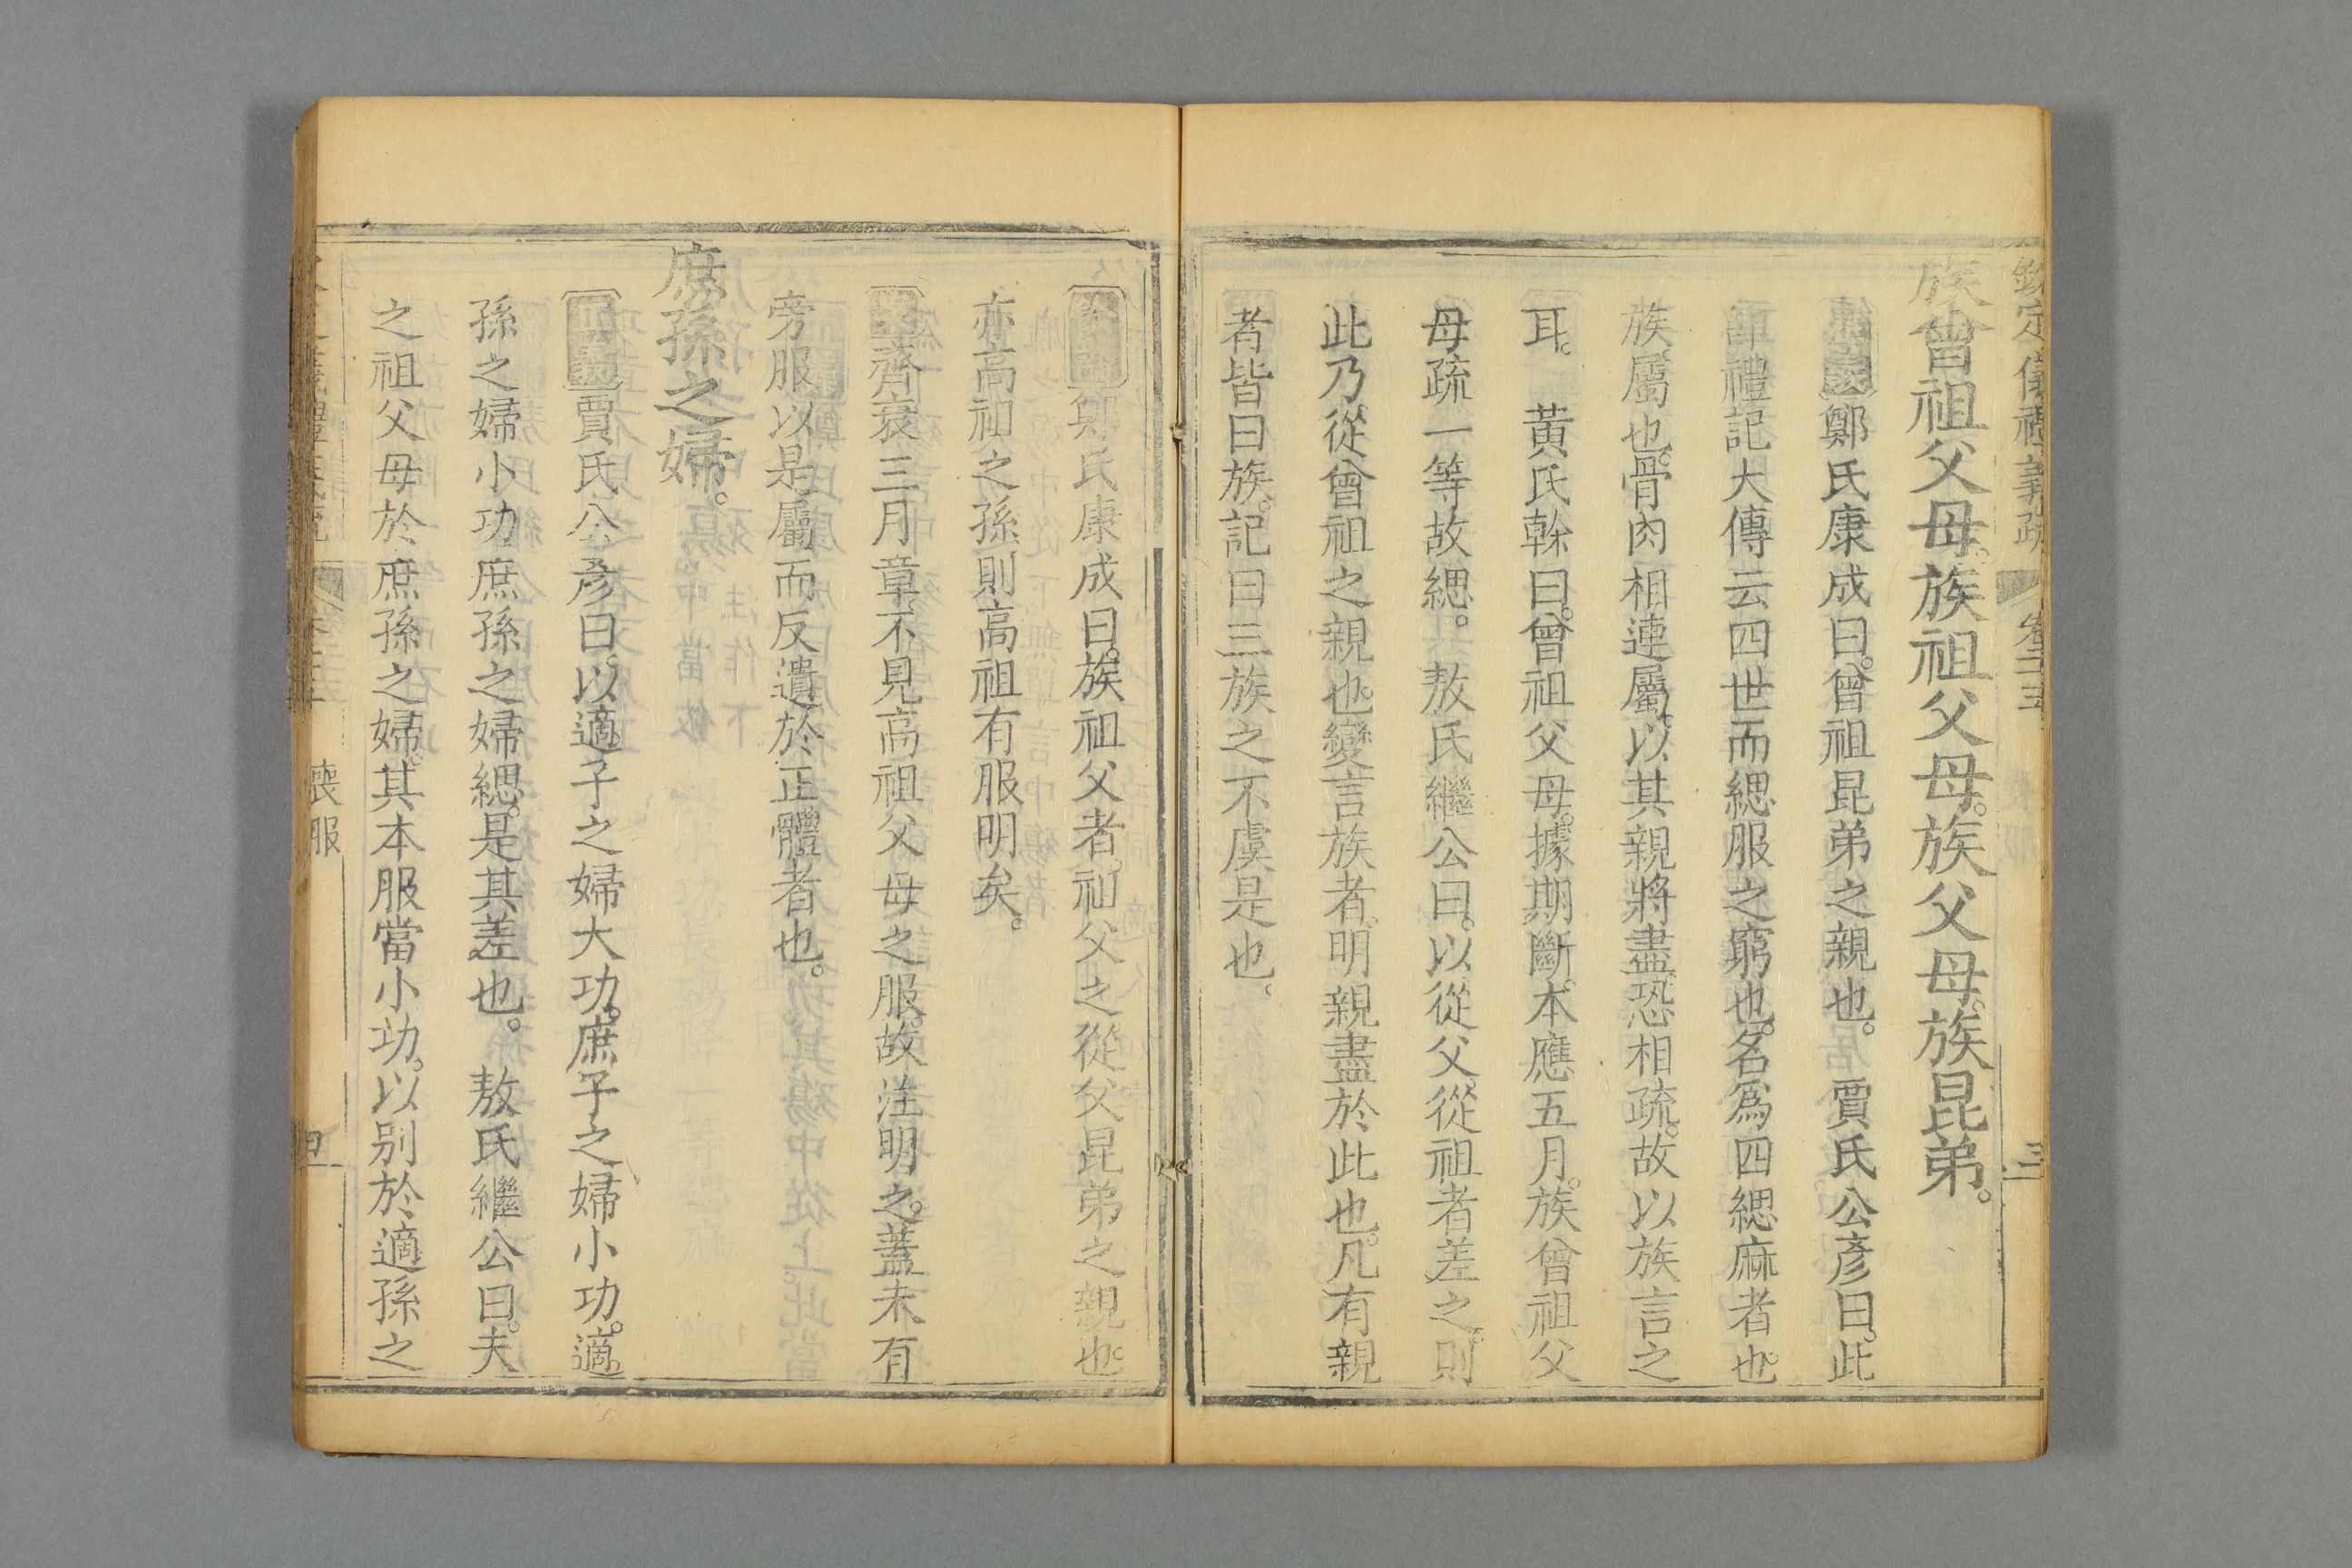 欽定儀禮義疏 卷二十五 三
族曾祖父母。族祖父母。族父母。族昆弟。
鄭氏康成曰。曾祖昆弟之親也。 賈氏公彥曰。此
即禮記大傳云四世而緦服之窮也。名爲四緦麻者也。
族。屬也。骨肉相連屬。以其親將盡。恐相疏。故以族言之
耳。 黃氏榦曰。曾祖父母。據期斷。本應五月。族曾祖父
母疏一等故緦。 敖氏繼公曰。以從父從祖者差之。則
此乃從曾祖之親也。變言族者。明親盡於此也。凡有親
者皆曰族。記曰三族之不虞是也。
鄭氏康成曰。族祖父者。祖父之從父昆弟之親也。
亦高祖之孫則高祖有服明矣。
齊衰三月章不見高祖父母之服。故注明之。蓋未有
旁服以是屬而反遺於正體者也。
庶孫之婦。
正義賈氏公彥曰。以適子之婦大功。庶子之婦小功。適
孫之婦小功庶孫之婦緦。是其差也。 敖氏繼公曰。夫
之祖父母於庶孫之婦。其本服當小功。以別於適孫之
喪服 四